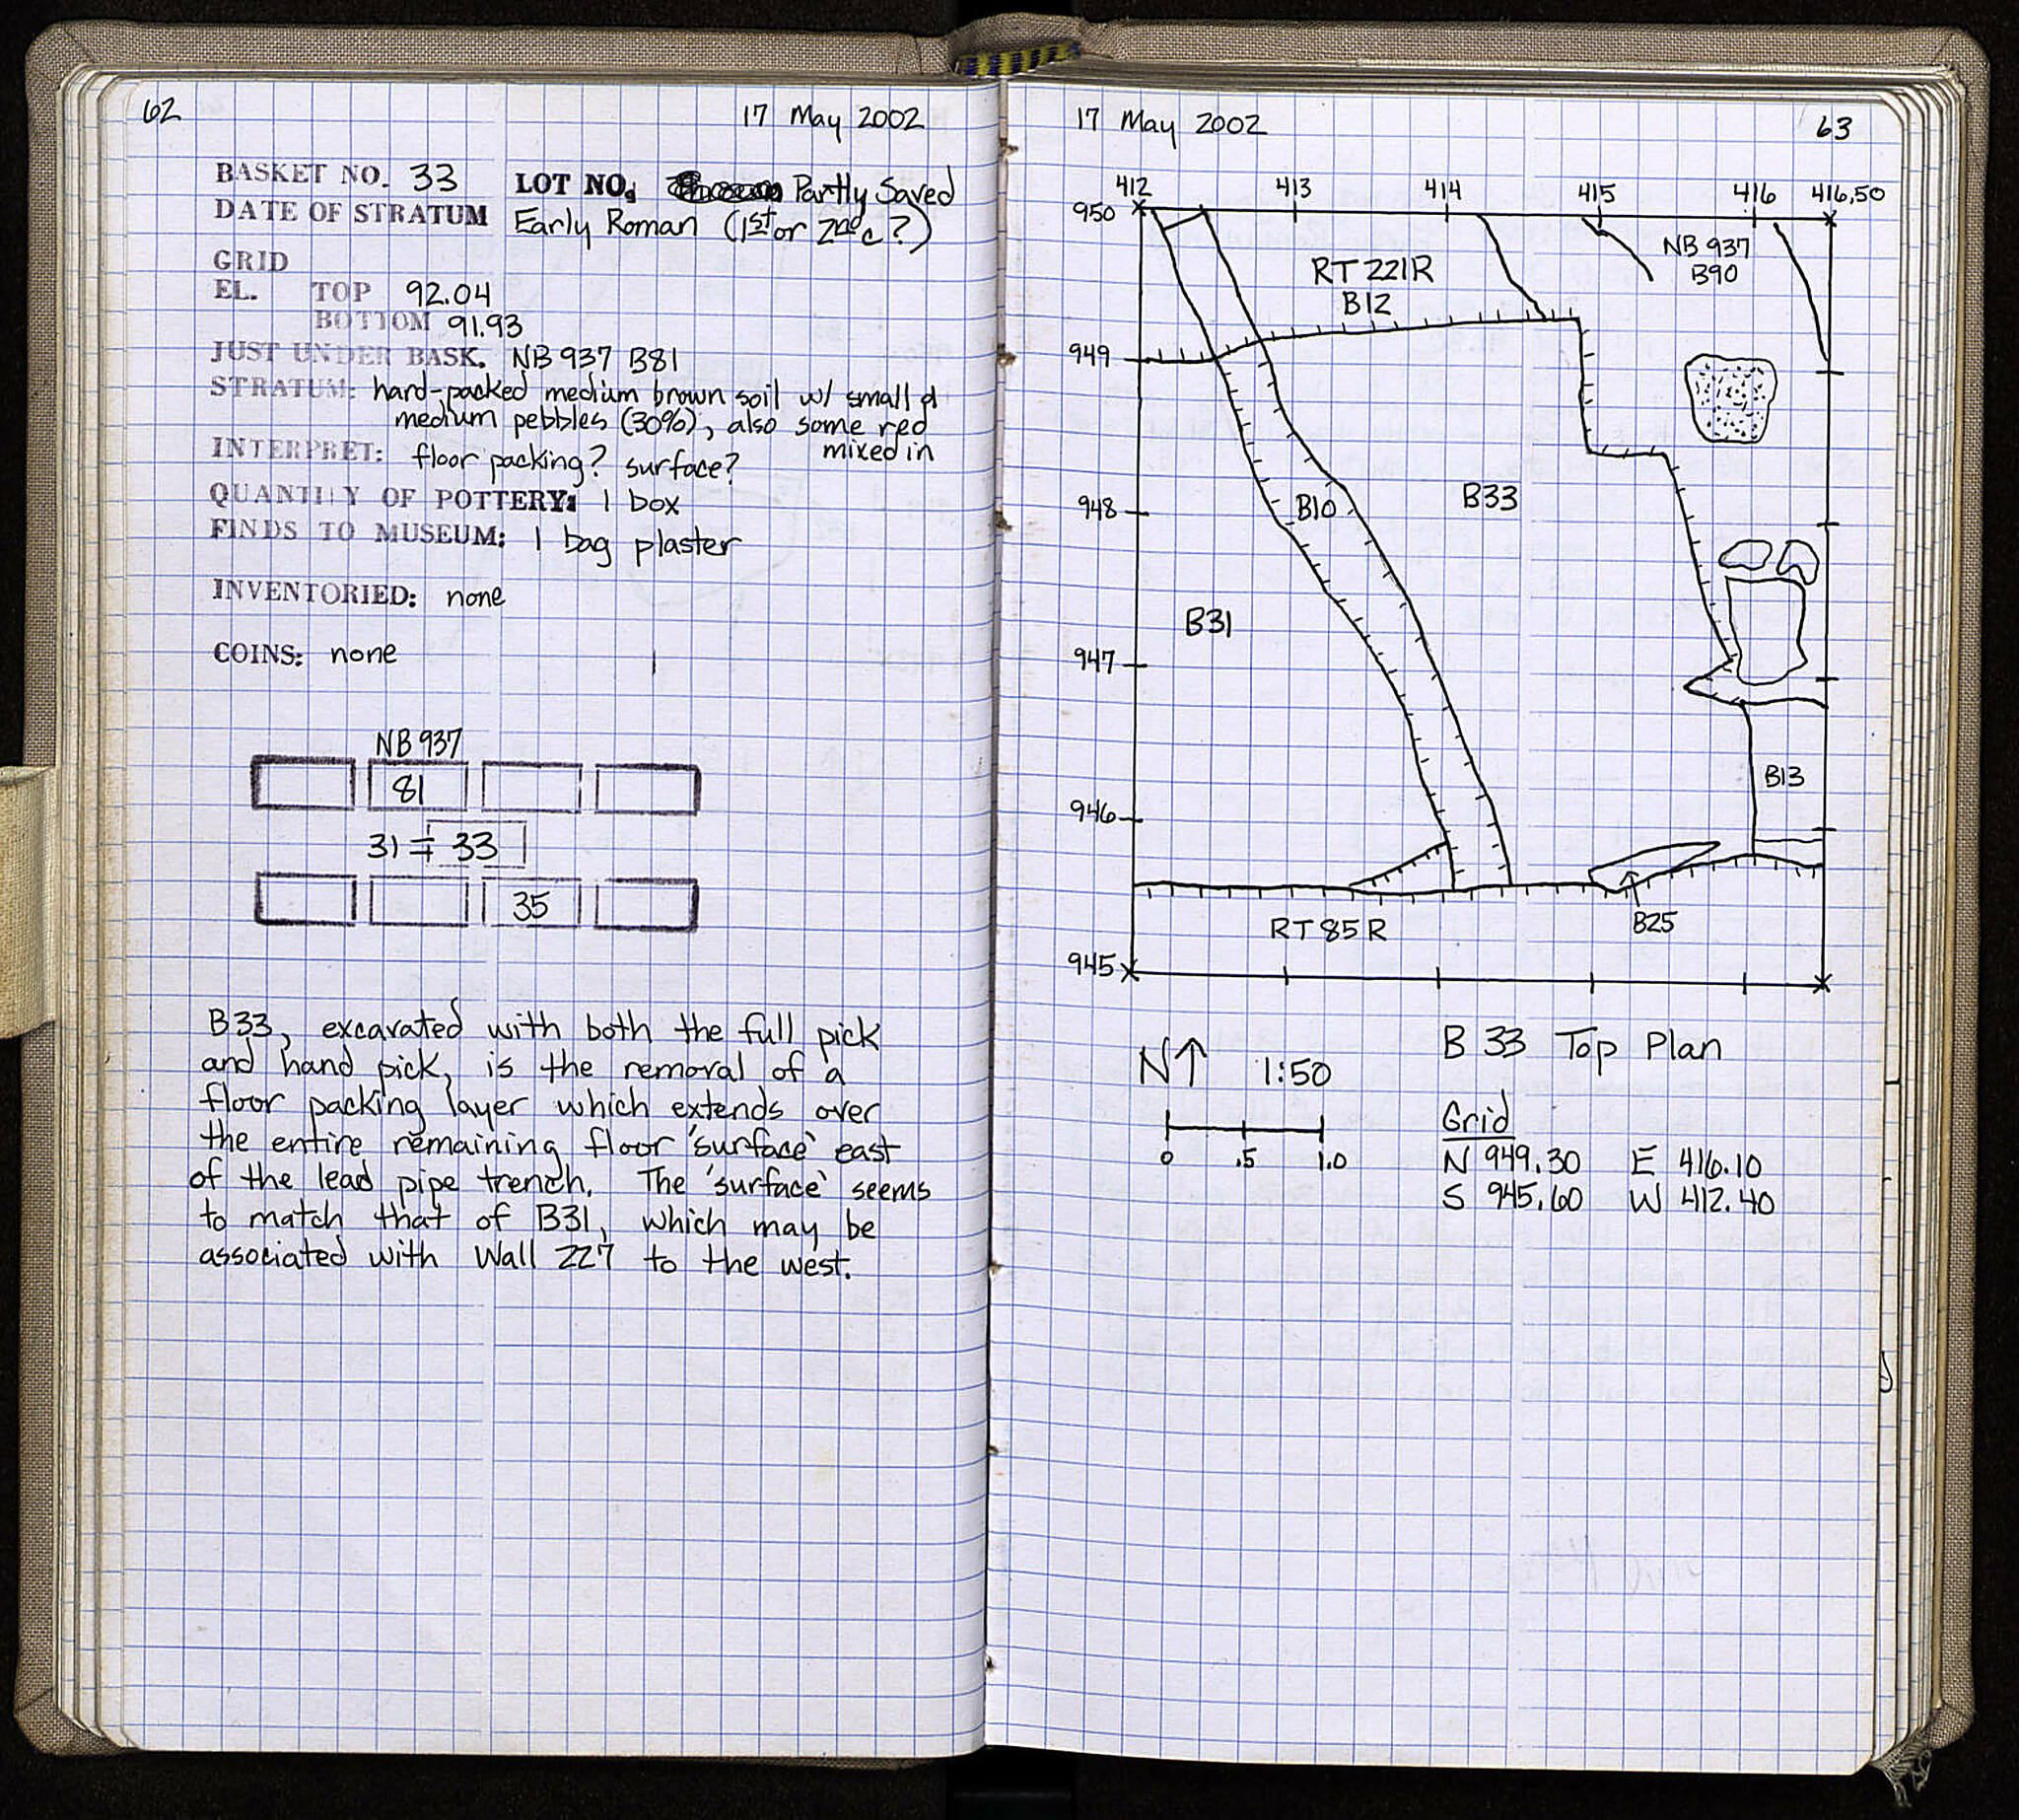 62
17 May 2002
BASKET NO. 33 LOT NO. Partly Saved
DATE OF STRATUM Early Roman (1st or 2nd c?)
GRID
EL. TOP 92.04
BOTTOM 91.93
JUST UNDER BASK. NB 937 B81
STRATUM: hard-packed medium brown soil w/ small &
medium pebbles (30%), also some red
mixed in
INTERPRET: floor packing? surface?
QUANTITY OF POTTERY: 1 box
FINDS TO MUSEUM: 1 bag plaster
INVENTORIED: none
COINS: none
NB 937
81
31 = 33
35
B33, excavated with both the full pick
and hand pick, is the removal of a
floor packing layer which extends over
the entire remaining floor 'surface' east
of the lead pipe trench. The 'surface' seems
to match that of B31, which may be
associated with Wall 227 to the west.
17 May 2002
63
412 413 414 415 416 416.50
950
NB 937
B90
RT 221R
B12
949
948
B10
B33
B31
947
B13
946
B25
RT 85 R
945
B 33 Top Plan
N↑ 1:50
0 .5 1.0
Grid
N 949.30 E 416.10
S 945.60 W 412.40